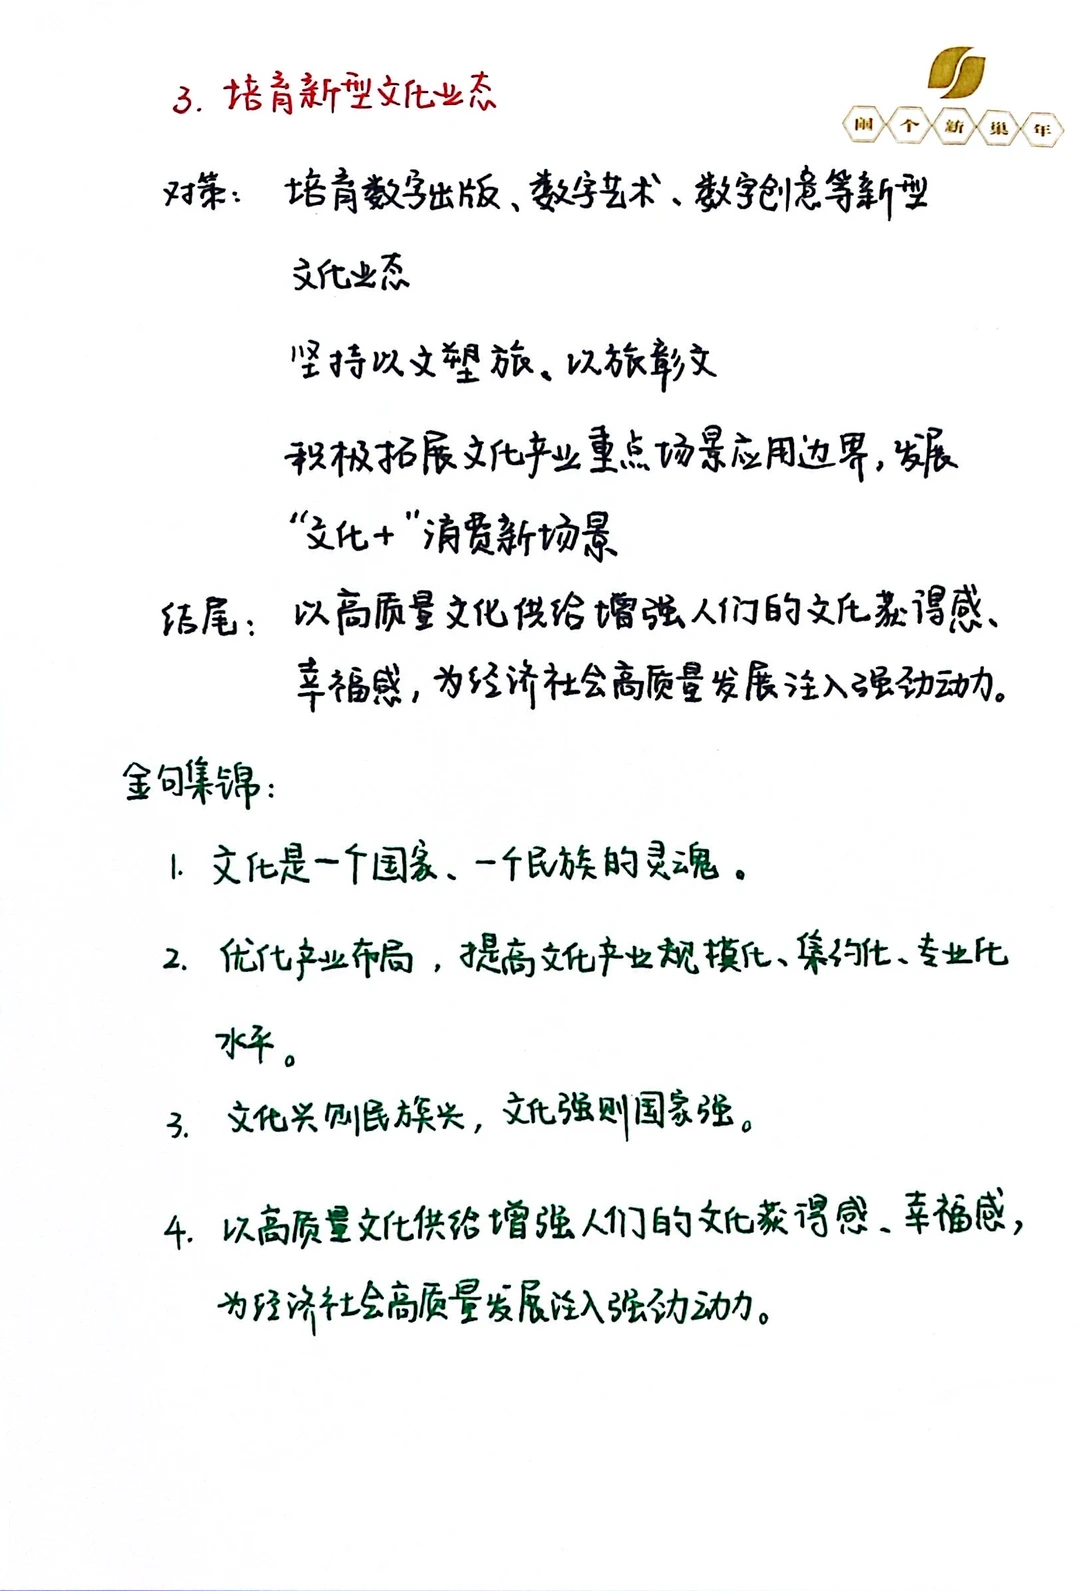 闹个新巢年
3. 培育新型文化业态
对策： 培育数字出版、数字艺术、数字创意等新型
文化业态
坚持以文塑旅、以旅彰文
积极拓展文化产业重点场景应用边界，发展
“文化＋”消费新场景
结尾： 以高质量文化供给增强人们的文化获得感、
幸福感，为经济社会高质量发展注入强劲动力。
金句集锦：
1. 文化是一个国家、一个民族的灵魂。
2. 优化产业布局，提高文化产业规模化、集约化、专业化
水平。
3. 文化兴则民族兴，文化强则国家强。
4. 以高质量文化供给增强人们的文化获得感、幸福感，
为经济社会高质量发展注入强劲动力。